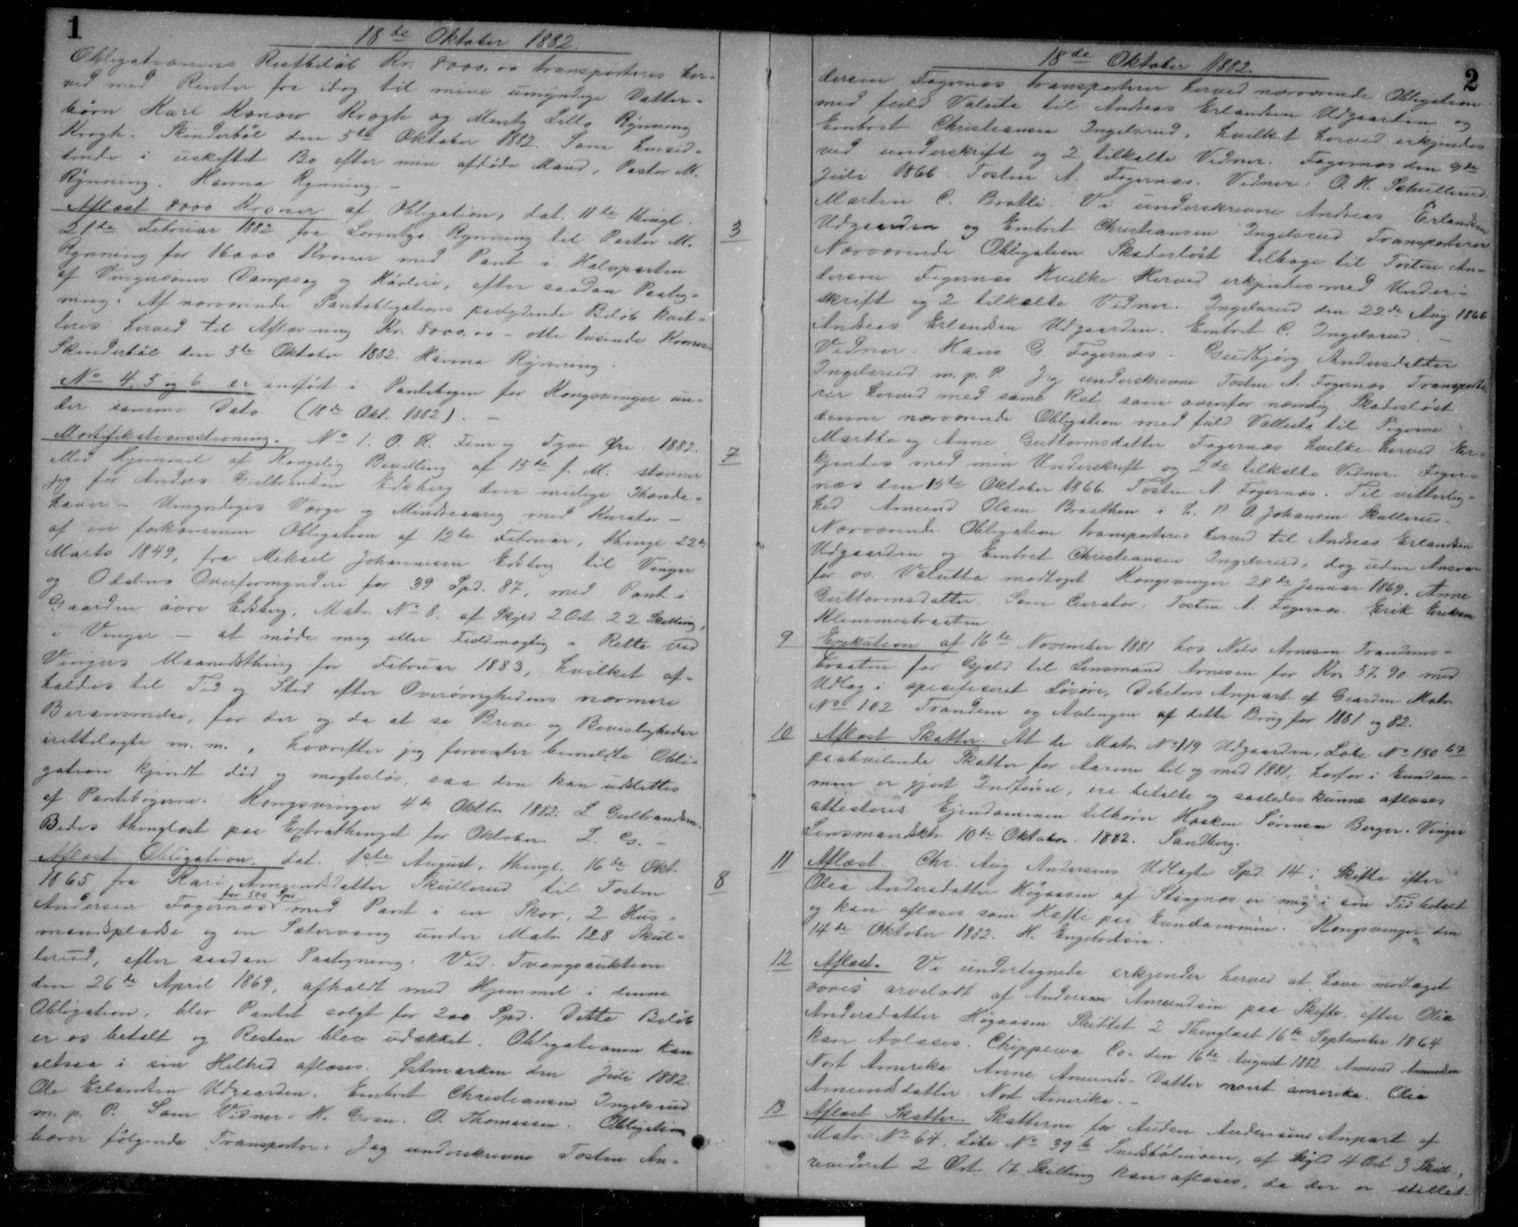 1
18de Oktober 1882.
Obligationens Restbeløb Kr. 8000.00 transporteres her-
ved med Renter fra idag til mine umyndige Datter-
børn Karl Konow Krogh og Mentz Lello Rynning
Krogh. Skinderböl den 5te Oktober 1882. Som hensid-
dende i uskiftet Bo efter min afdöde Mand, Pastor M.
Rynning. Hanna Rynning. -
3
Aflæst 8000 Kroner af Obligation, dat. 11te thingl.
21de Februar 1882 fra Lorentz Rynning til Pastor M.
Rynning for 16000 Kroner med Pant i Halvparten
af Vingersöens Dampsag og Hövleri, efter saadan Paateg-
ning: Af nærværende Pantobligations paalydende Beløb kvit-
teres herved til Aflæsning Kr. 8000.00 - otte tusinde Kroner.
Skinderböl den 5te Oktober 1882. Hanna Rynning.
No 4, 5 og 6 er anført i Pantebogen for Kongsvinger un-
der samme Dato (18de Okt. 1882). -
7
Mortifikationsstevning. No 1. O. R. Fem og Tyve Øre. 1882.
Med Hjemmel af Kongelig Bevilling af 15de f. M. stevner
jeg for Anders Gulbrandsen Edsberg den mulige Ihænde-
haver - Umyndiges Værge og Mindreaarig med Kurator -
af en forkommen Obligation af 12te Februar, thingl. 22de
Marts 1849, fra Mikael Johannesen Edsberg til Vinger
og Odalens Overformynderi for 39 Spd. 87, med Pant i
Gaarden övre Edsberg, Matr. No 8. af Skyld 2 Ort 22 Skilling,
i Vinger - at møde mig eller Fuldmægtig i Rette ved
Vingers Maanedsthing for Februar 1883, hvilket af-
holdes til Tid og Sted efter Overøvrighedens nærmere
Berammelse, for der og da at se Breve og Bevisligheder
irettelagte m. m., hvorefter jeg forventer bemeldte Obli-
gation kjendt død og magtesløs, saa den kan udslettes
af Pantebøgerne. Kongsvinger 4de Oktbr 1882. L Gulbrandsen.
Bedes thinglæst paa Extrathinget for Oktober. L. G. -
8
Aflæst Obligation, dat. 1ste August, thingl. 16de Okt.
1865 fra Kari Amundsdatter Skullerud til Tosten
for 500 Spd.
Andersen Fogernæs med Pant i en Skov, 2 Hus-
mandspladse og en Sætervang under Matr. 128 Skul-
lerud, efter saadan Paategning: Ved Tvangsauktion
den 26de April 1869, afholdt med Hjemmel i denne
Obligation, blev Pantet solgt for 200 Spd. Dette Beløb
er os betalt og Resten blev udækket. Obligationen kan
altsaa i sin Helhed aflæses. Østmarken den Juli 1882.
Ole Erlandsen Udgaarden. Embret Christiansen Ingelsrud
m. p. P. Som Vidner: H. Gran. O. Thomassen. Obligation
bærer følgende Transporter: Jeg underskrevne Tosten An-
2
18de Oktober 1882.
dersen Fogernæs transporterer herved nærværende Obligation
med fuld Valuta til Andreas Erlandsen Udgaarden og
Embret Christiansen Ingelsrud, hvilket herved erkjendes
ved underskrift og 2 tilkalte Vidner. Fogernæs den 9de
Juli 1866. Tosten A. Fogernæs. Vidner: O. H. Skullerud.
Martin C. Bratli. Vi underskrevne Andreas Erlandsen
Udgaarden og Embret Christiansen Ingelsrud Transporterer
Nærværende Obligation Skadesløst tilbage til Tosten An-
dersen Fogernæs Hvilke Herved erkjendes med Under-
skrift og 2 tilkalte Vidner. Ingelsrud den 22de Aug 1866
Andreas Erlandsen Udgaarden. Embret C. Ingelsrud. -
Vidner. Hans G. Fogernæs. Gudbjörg Andersdatter
Ingelsrud m. p. P. Jeg underskrevne Tosten A. Fogernæs Transporte-
rer herved med samme Ret som ovenfor nævnt Skadesløst
denne nærværende Obligation med fuld Valluta til Pigerne
Marthe og Anne Guttormsdatter Fogernæs hvilke herved Er-
kjendes med min Underskrift og 2de tilkalte Vidner. Foger-
næs den 15te Oktober 1866. Tosten A. Fogernæs. Til vitterlig-
hed Amund Olsen Braathen O. Johansen Skullerud.
Nærværende Obligation transporteres herved til Andreas Erlandsen
Udgaarden og Embret Christiansen Ingelsrud, dog uden Ansvar
for os. Valutta modtaget Kongsvinger 28de Januar 1869. Anne
Guttormsdatter. Som Curator: Tosten A. Fogernæs. Erik Eriksen
Klemmestraaten.
9 Exekution af 16de November 1881 hos Nils Arnesen Trandems-
braaten for Gjæld til Lensmand Arnesen for Kr. 57.90 med
Udlæg i specificeret Løsøre, Debitors Anpart af Gaarden Matr.
No 102 Trandem og Avlingen af dette Brug for 1881 og 82.
10 Aflæst Skatter. At de Matr. No 119 Udgaarden, Løbe No 150 b7
paahvilende Skatter for Aarene til og med 1881, herfor i Eiendom-
men er gjort Indførsel, ere betalte og saaledes kunne aflæses
attesteres Ejendommen tilhører Haaken Sörensen Berger. Vinger
Lensmandsktr. 10de Oktober 1882. Sandberg.
11 Aflæst. Chr. Aug Andersens Udlagte Spd. 14 i Skifte efter
Olea Andersdatter Högaasen af Stingnæs er mig i sin Tid betalt
og kan aflæses som Hæfte paa Eiendommen. Kongsvinger den
14de Oktober 1882. H. Engebretsen.
12 Aflæst. Vi undertegnede erkjender herved at have modtaget
vores arvelodt af Andersen Amundsen paa Skifte efter Olea
Andersdatter Högaasen Skiftet 2 Thinglæst 16de September 1864
kan Avlæses. Chippewa Co. den 16de August 1882. Amund Amundsen
Nort Amerika Anne Amunds-Datter nort amerika. Olea
Amundsdatter. Nort Amerika. -
13 Aflæst Skatter. Skatterne for Auden Audensens Anpart af
Matr. No 64, Løbe No 39 b Snedsbölmoen, af Skyld 4 Ort 3 Skill,
revideret 2 Ort 17 Skilling kan aflæses, da der er stillet